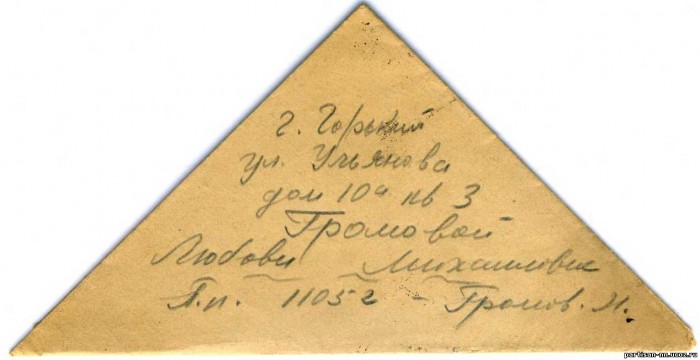 г. Горький
ул. Ульянова
дом 10а кв 3
Громовой
Любови Михайловне
П.п. 11052 - Громов. М.
partisan-nn.ucoz.ru